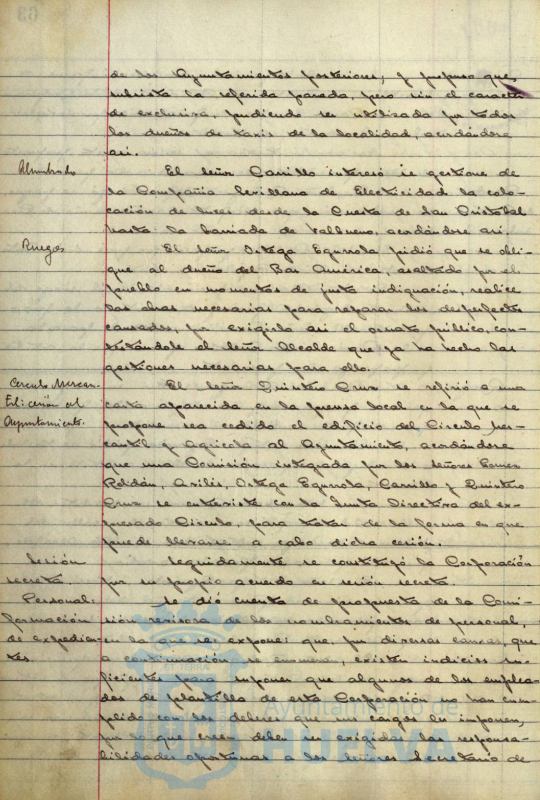 de los Ayuntamientos posteriores, y propuso que
subsista la referida parada, pero sin el caracter
de exclusiva, pudiendo ser utilizada por todos
los dueños de taxis de la localidad, acordándose
asi.
Alumbrado
El Señor Carrillo interesó se gestione de
la Compañia Sevillana de Electricidad la colo-
cación de luces desde la Cuesta de San Cristobal
hasta la barriada de Valbueno, acordándose asi.
Ruegos
El Señor Ortega Egurrola pidió que se obli-
gue al dueño del Bar América, asaltado por el
pueblo en momentos de justa indignación, realice
las obras necesarias para reparar los desperfectos
causados, por exigirlo asi el ornato público, con-
testándole el Señor Alcalde que ya ha hecho las
gestiones necesarias para ello.
Circulo Mercan-
til: cesión al
Ayuntamiento.
El Señor Quintero Cruz se refirió a una
carta aparecida en la prensa local en la que se
propone sea cedido el edificio del Circulo Mer-
cantil y Agricola al Ayuntamiento, acordándose
que una Comisión integrada por los Señores Gomez
Roldán, Asilis, Ortega Egurrola, Carrillo y Quintero
Cruz se entreviste con la Junta Directiva del ex-
presado Circulo, para tratar de la forma en que
puede llevarse a cabo dicha cesión.
Sesión
secreta.
Seguidamente se constituyó la Corporación
por su propio acuerdo en sesión secreta.
Personal:
formación
de expedien-
tes.
Se dió cuenta de propuesta de la Comi-
sión revisora de los nombramientos de personal,
en la que se expone: que, por diversas causas, que
a continuación se enumeran, existen indicios su-
ficientes para suponer que algunos de los emplea-
dos de plantilla de esta Corporación no han cum-
plido con los deberes que sus cargos les imponen,
por lo que creen deben ser exigidas las responsa-
bilidades oportunas a los Señores Secretario de
Ayuntamiento de
HUELVA